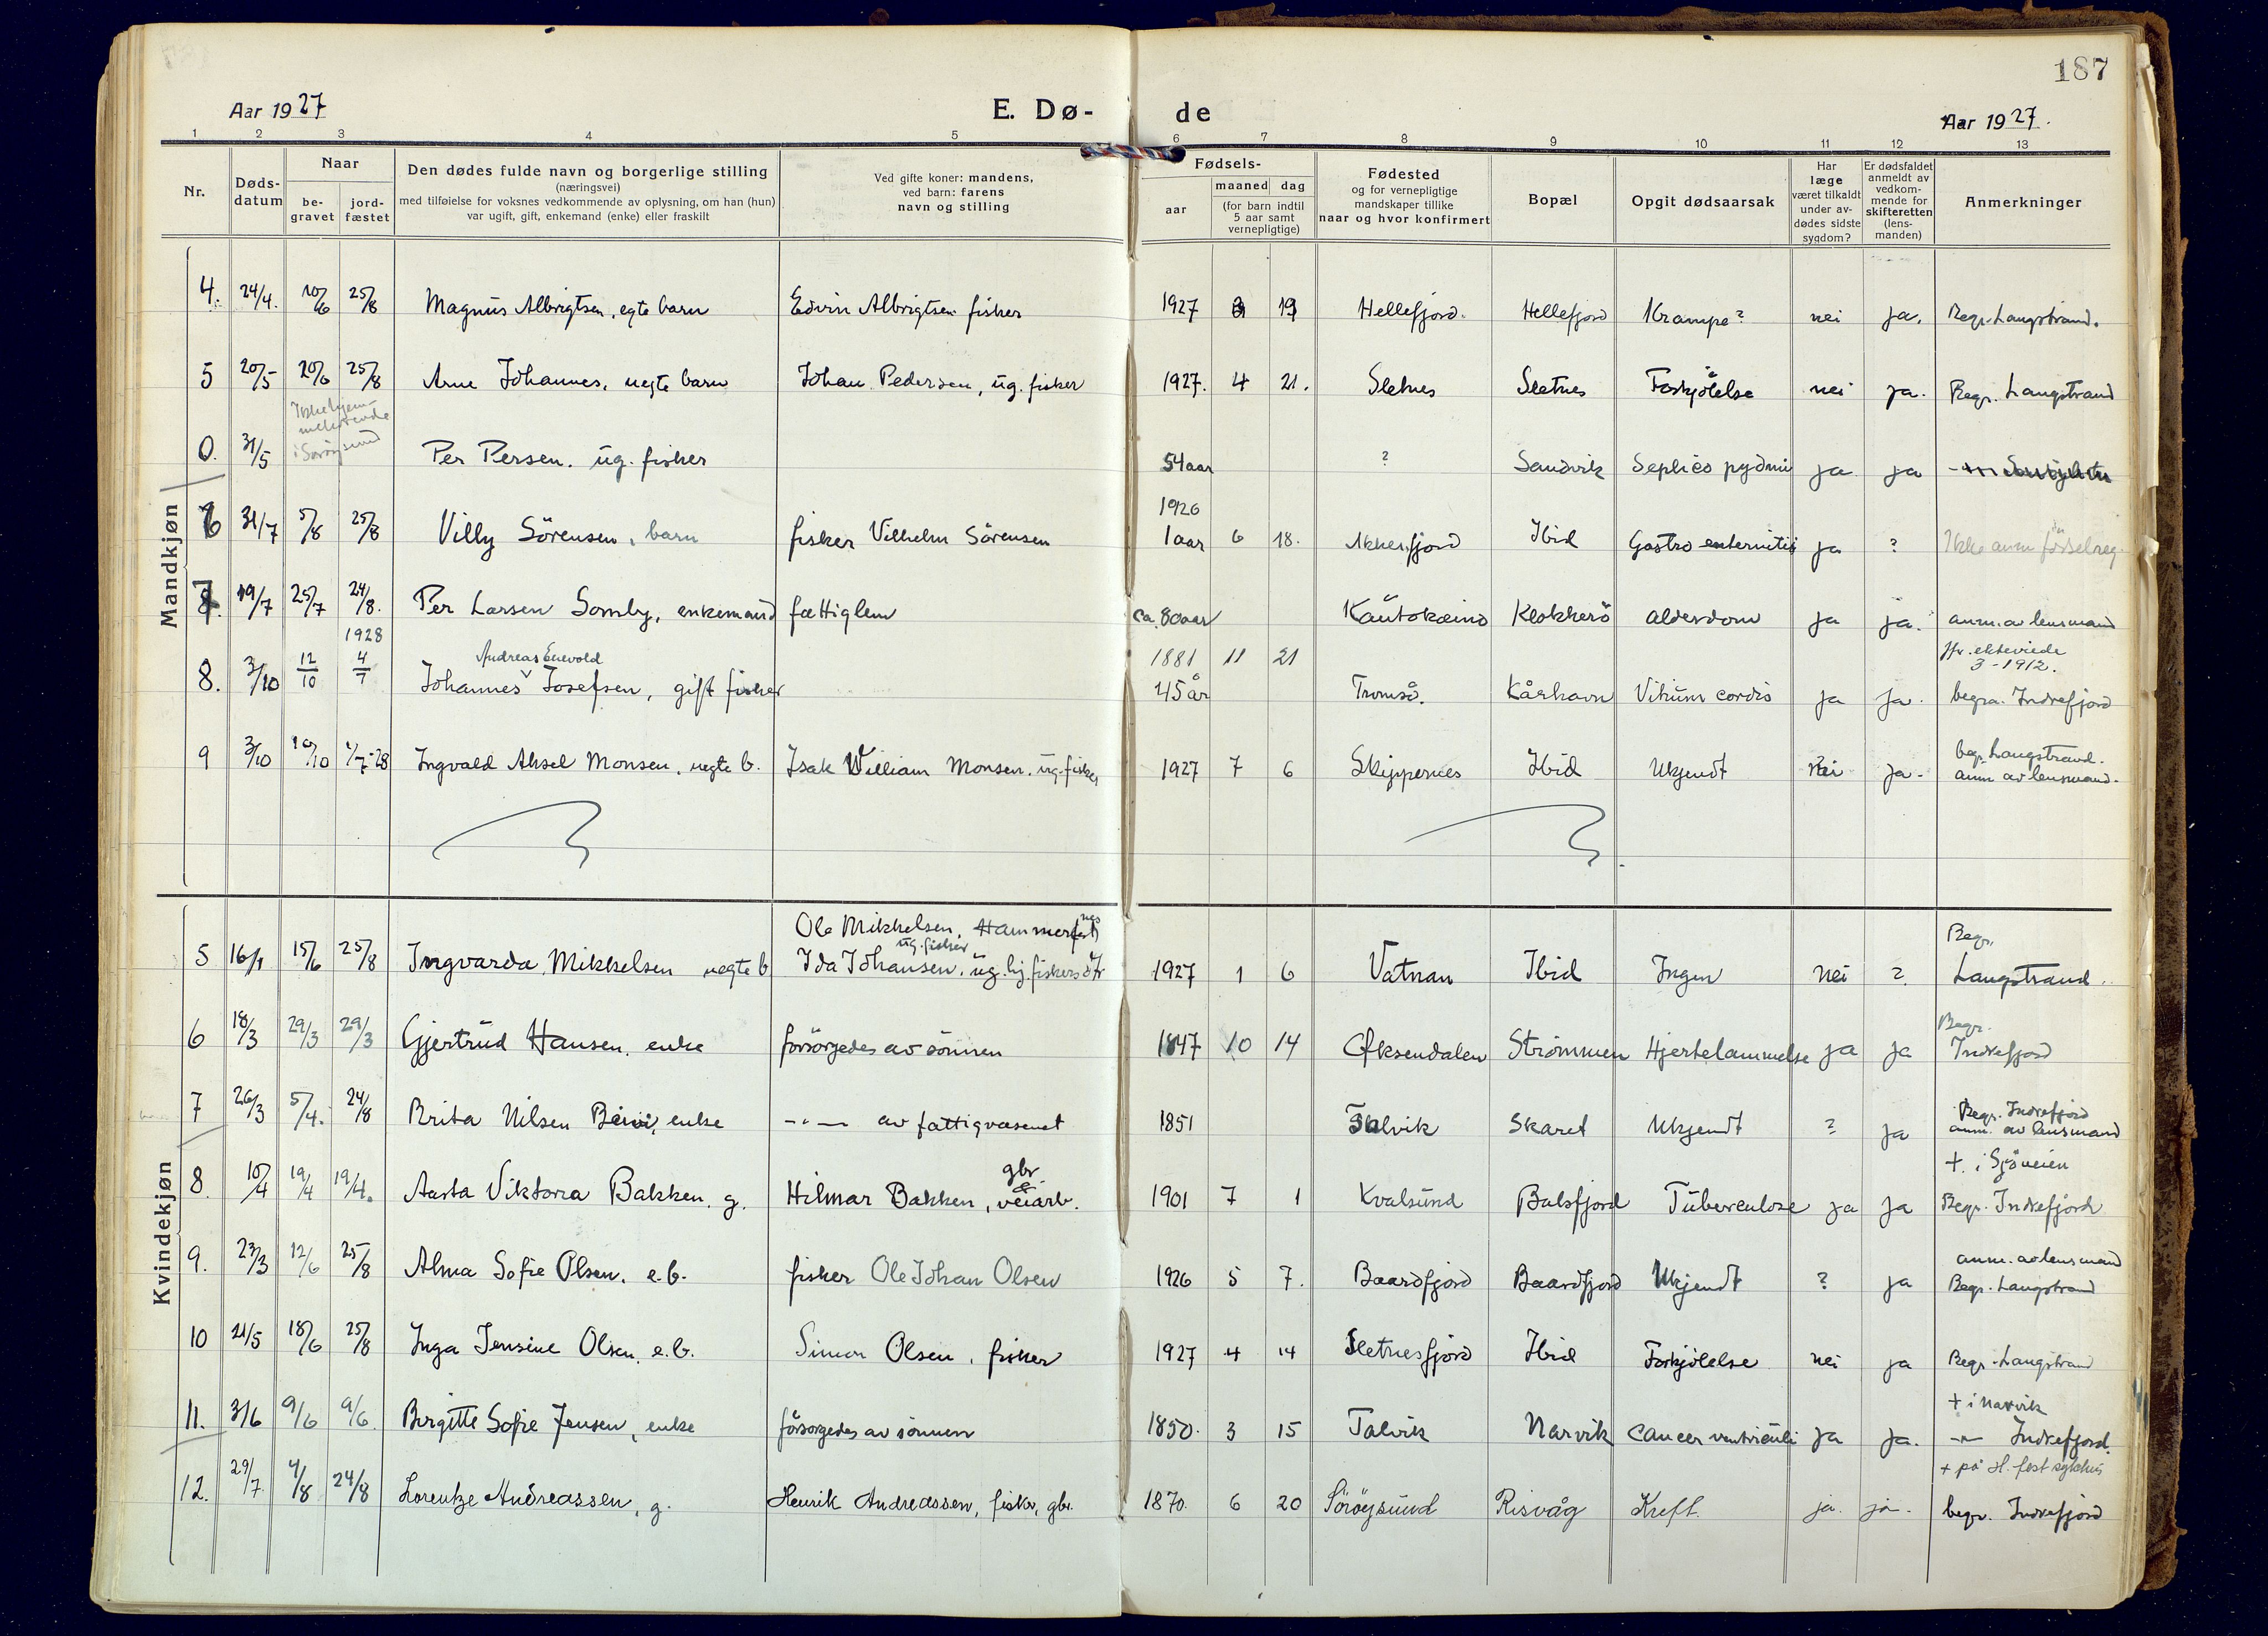 187
Aar 1927
E. Dø-
de
Aar 1927.
1 2 3 4 5 6 7 8 9 10 11 12 13
Nr.
Døds-
datum
Naar
be-
gravet
jord-
fæstet
Den dødes fulde navn og borgerlige stilling
(næringsvei)
med tilføielse for voksnes vedkommende av oplysning, om han (hun)
var ugift, gift, enkemand (enke) eller fraskilt
Ved gifte koner: mandens,
ved barn: farens
navn og stilling
Fødsels-
aar
maaned dag
(for barn indtil
5 aar samt
vernepligtige)
Fødested
og for vernepligtige
mandskaper tillike
naar og hvor konfirmert
Bopæl
Opgit dødsaarsak
Har
læge
været tilkaldt
under av-
dødes sidste
sygdom?
Er dødsfaldet
anmeldt av
vedkom-
mende for
skifteretten
(lens-
manden)
Anmerkninger
Mandkjøn
4. 24/4. 10/6 25/8 Magnus Albrigtsen, egte barn Edvin Albrigtsen fisker 1927 19 Hellefjord. Hellefjord Krampe? nei ja. Begr. Langstrand.
5 20/5 20/6 25/8 Arne Johannes, uegte barn Johan Pedersen, ug. fisker 1927. 4 21. Sletnes Sletnes Forkjölelse nei ja. Begr. Langstrand
Ikke hjem-
mehörende
i Söröysund
0. 31/5 Per Persen. ug. fisker 54 aar ? Sandvik ja ja
1926
6 31/7 5/8 25/8 Villy Sörensen, barn fisker Vilhelm Sörensen 1 aar 6 18. Akkerfjord Ibid Gastro enternitis ja ? Ikke anm. i födselreg.
7. 19/7 25/7 24/8. Per Larsen Somby, enkemand fattiglem ca. 80 aar Kautokeino Klokkerö alderdom ja ja. anm. av lensmand
1928
Andreas Enevold
1881 11 21
jfr. ekteviede
3 - 1912.
8. 3/10 12/10 4/7 Johannes Josefsen, gift fisker 45 år Tromsö. Kårhavn Vitium cordis ja ja. begra. Indrefjord
9 3/10 10/10 4/7-28 Ingvald Aksel Monsen, uegte b. Isak William Monsen. ug. fisker 1927 7 6 Skippernes Ibid Ukjendt Nei ja.
begr. Langstrand.
anm. av lensmand.
Kvindekjøn
Ole Mikkelsen, Hammerfest nes
ug. fisker
Begr.
5 16/1 15/6 25/8 Ingvarda Mikkelsen uegte b Ida Johansen, ug. hj. fiskersdtr 1927 1 6 Vatnan Ibid Ingen nei ? Langstrand.
Begr.
6 18/3 29/3 29/3 Gjertrud Hansen, enke forsörgedes av sönnen 1847 10 14 Öksendalen Strömmen Hjertelammelse ja ja Indrefjord
7 26/3 5/4. 24/8 Brita Nilsen enke -"- av fattigvæsenet 1851 Talvik Skaret Ukjendt ? ja
Begr. Indrefjord
anm. av lensmand
gbr &
+ i Sjöveien
8. 10/4 19/4 19/4. Aasta Viktoria Bakken, g. Hilmar Bakken, veiarb. 1901 7 1 Kvalsund Balsfjord Tuberculose ja ja Begr. Indrefjord
anm. av lensmand
9. 23/3 12/6 25/8 Alma Sofie Olsen, e.b. fisker Ole Johan Olsen 1926 5 7. Baardfjord Baardfjord Ukjendt ? ja Begr. Langstrand
10 21/5 18/6 25/8 Inga Jensine Olsen, e.b. Simon Olsen, fisker 1927 4 14 Sletnesfjord Ibid Forkjölelse nei ja Begr. Langstrand
+ i Narvik
11. 3/6 9/6 9/6. Birgitte Sofie Jensen, enke forsörgedes av sönnen 1850. 3 15 Talvik Narvik Cancer ventriculi ja ja. -"- Indrefjord.
+ på H.fest sykehus
12. 29/7 4/8 24/8 Lorentze Andreassen, g. Henrik Andreassen, fisker, gbr. 1870. 6 20 Söröysund Risvåg Kreft. ja. ja. begr. Indrefjord